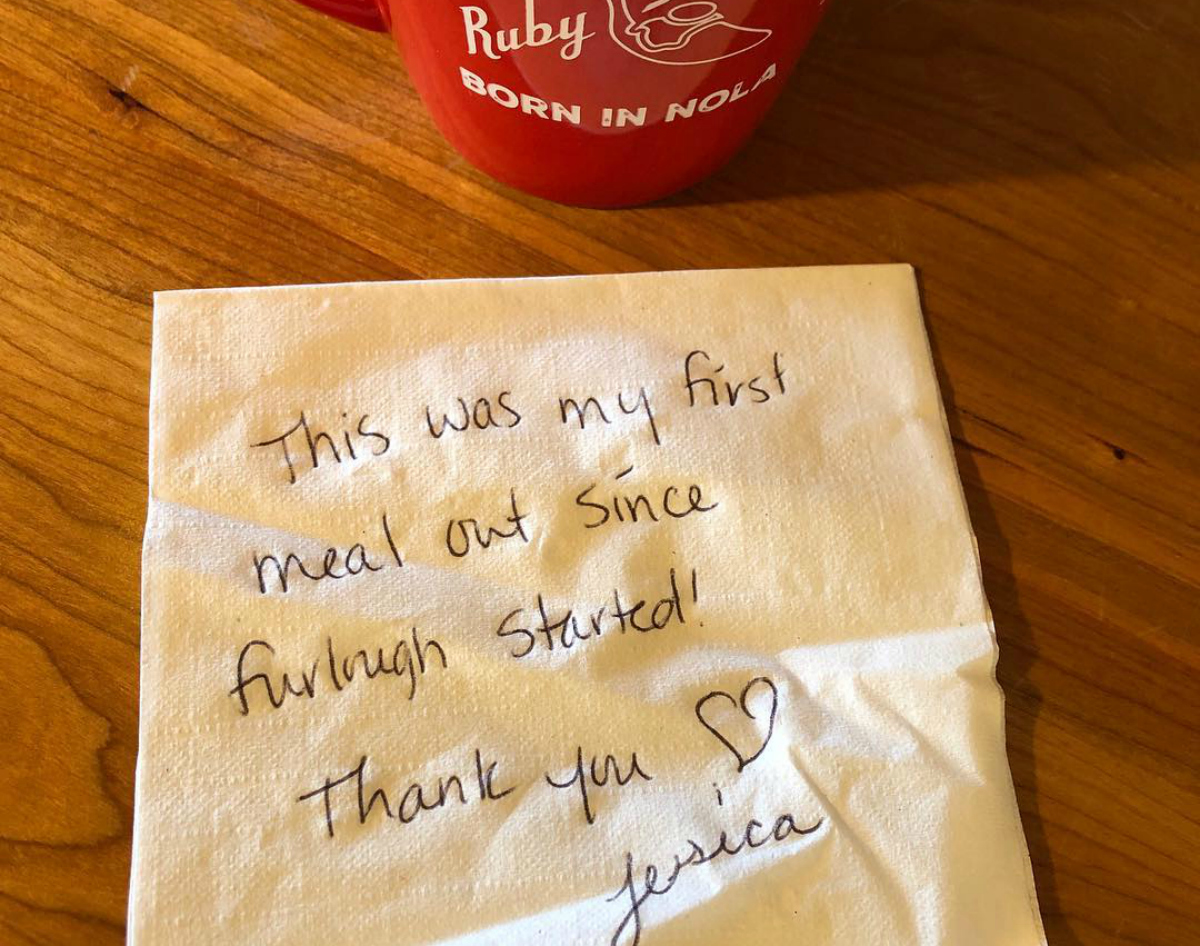 Ruby
BORN IN NOLA
This was my first
meal out since
furlough started!
Thank you ♡
Jessica